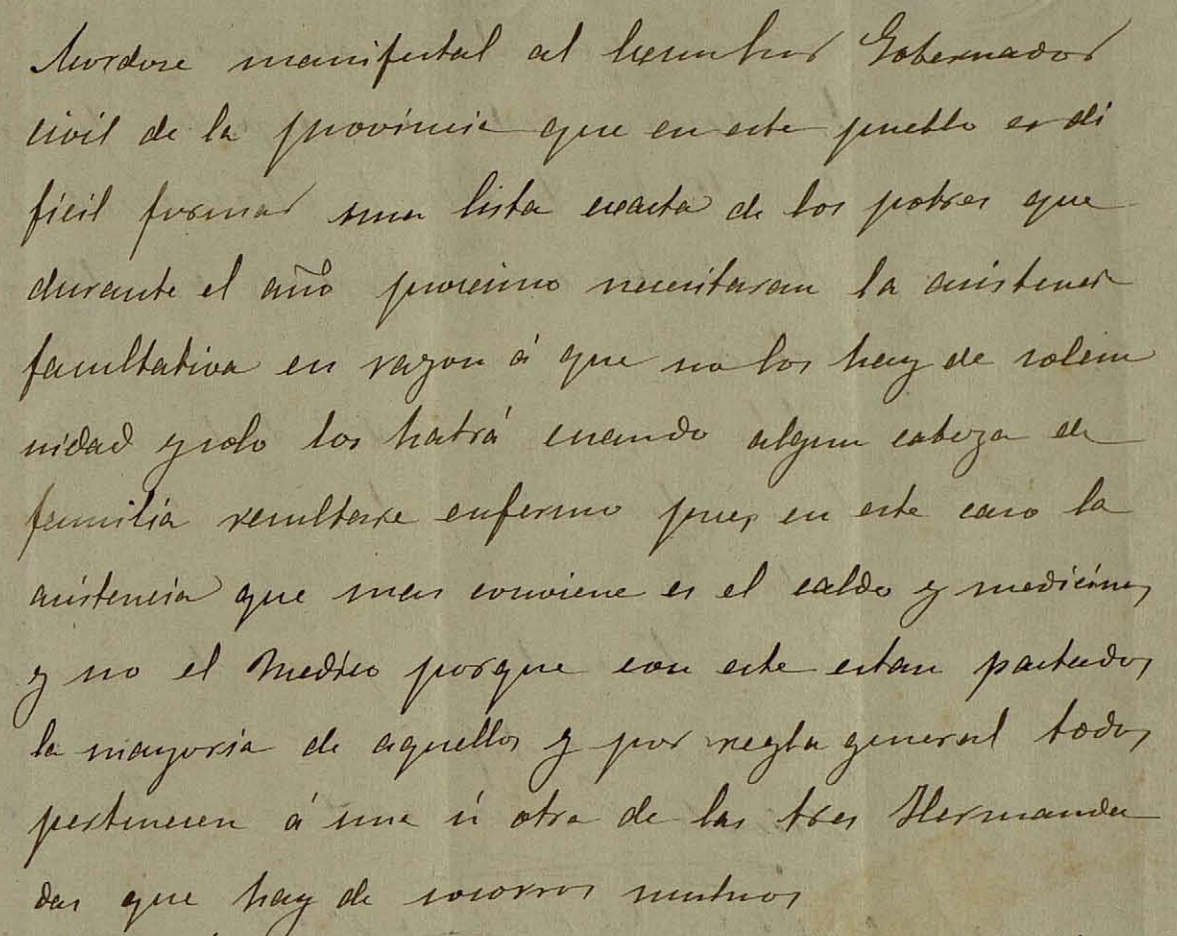 manifestar al Gobernador
civil de la provincia que en este pueblo es di
ficil formar una lista exacta de los pobres que
durante el año procsimo necesitaran la asistencia
facultativa en razon á que no los hay de solem
nidad y solo los habrá cuando algun cabeza de
familia resultase enfermo pues en este caso la
asistencia que mas conviene es el caldo y medicinas
y no el Medico porque con este estan pactados
la mayoria de aquellos y por regla general todos
pertenecen á una ú otra de las tres Hermanda
das que hay de socorros mutuos